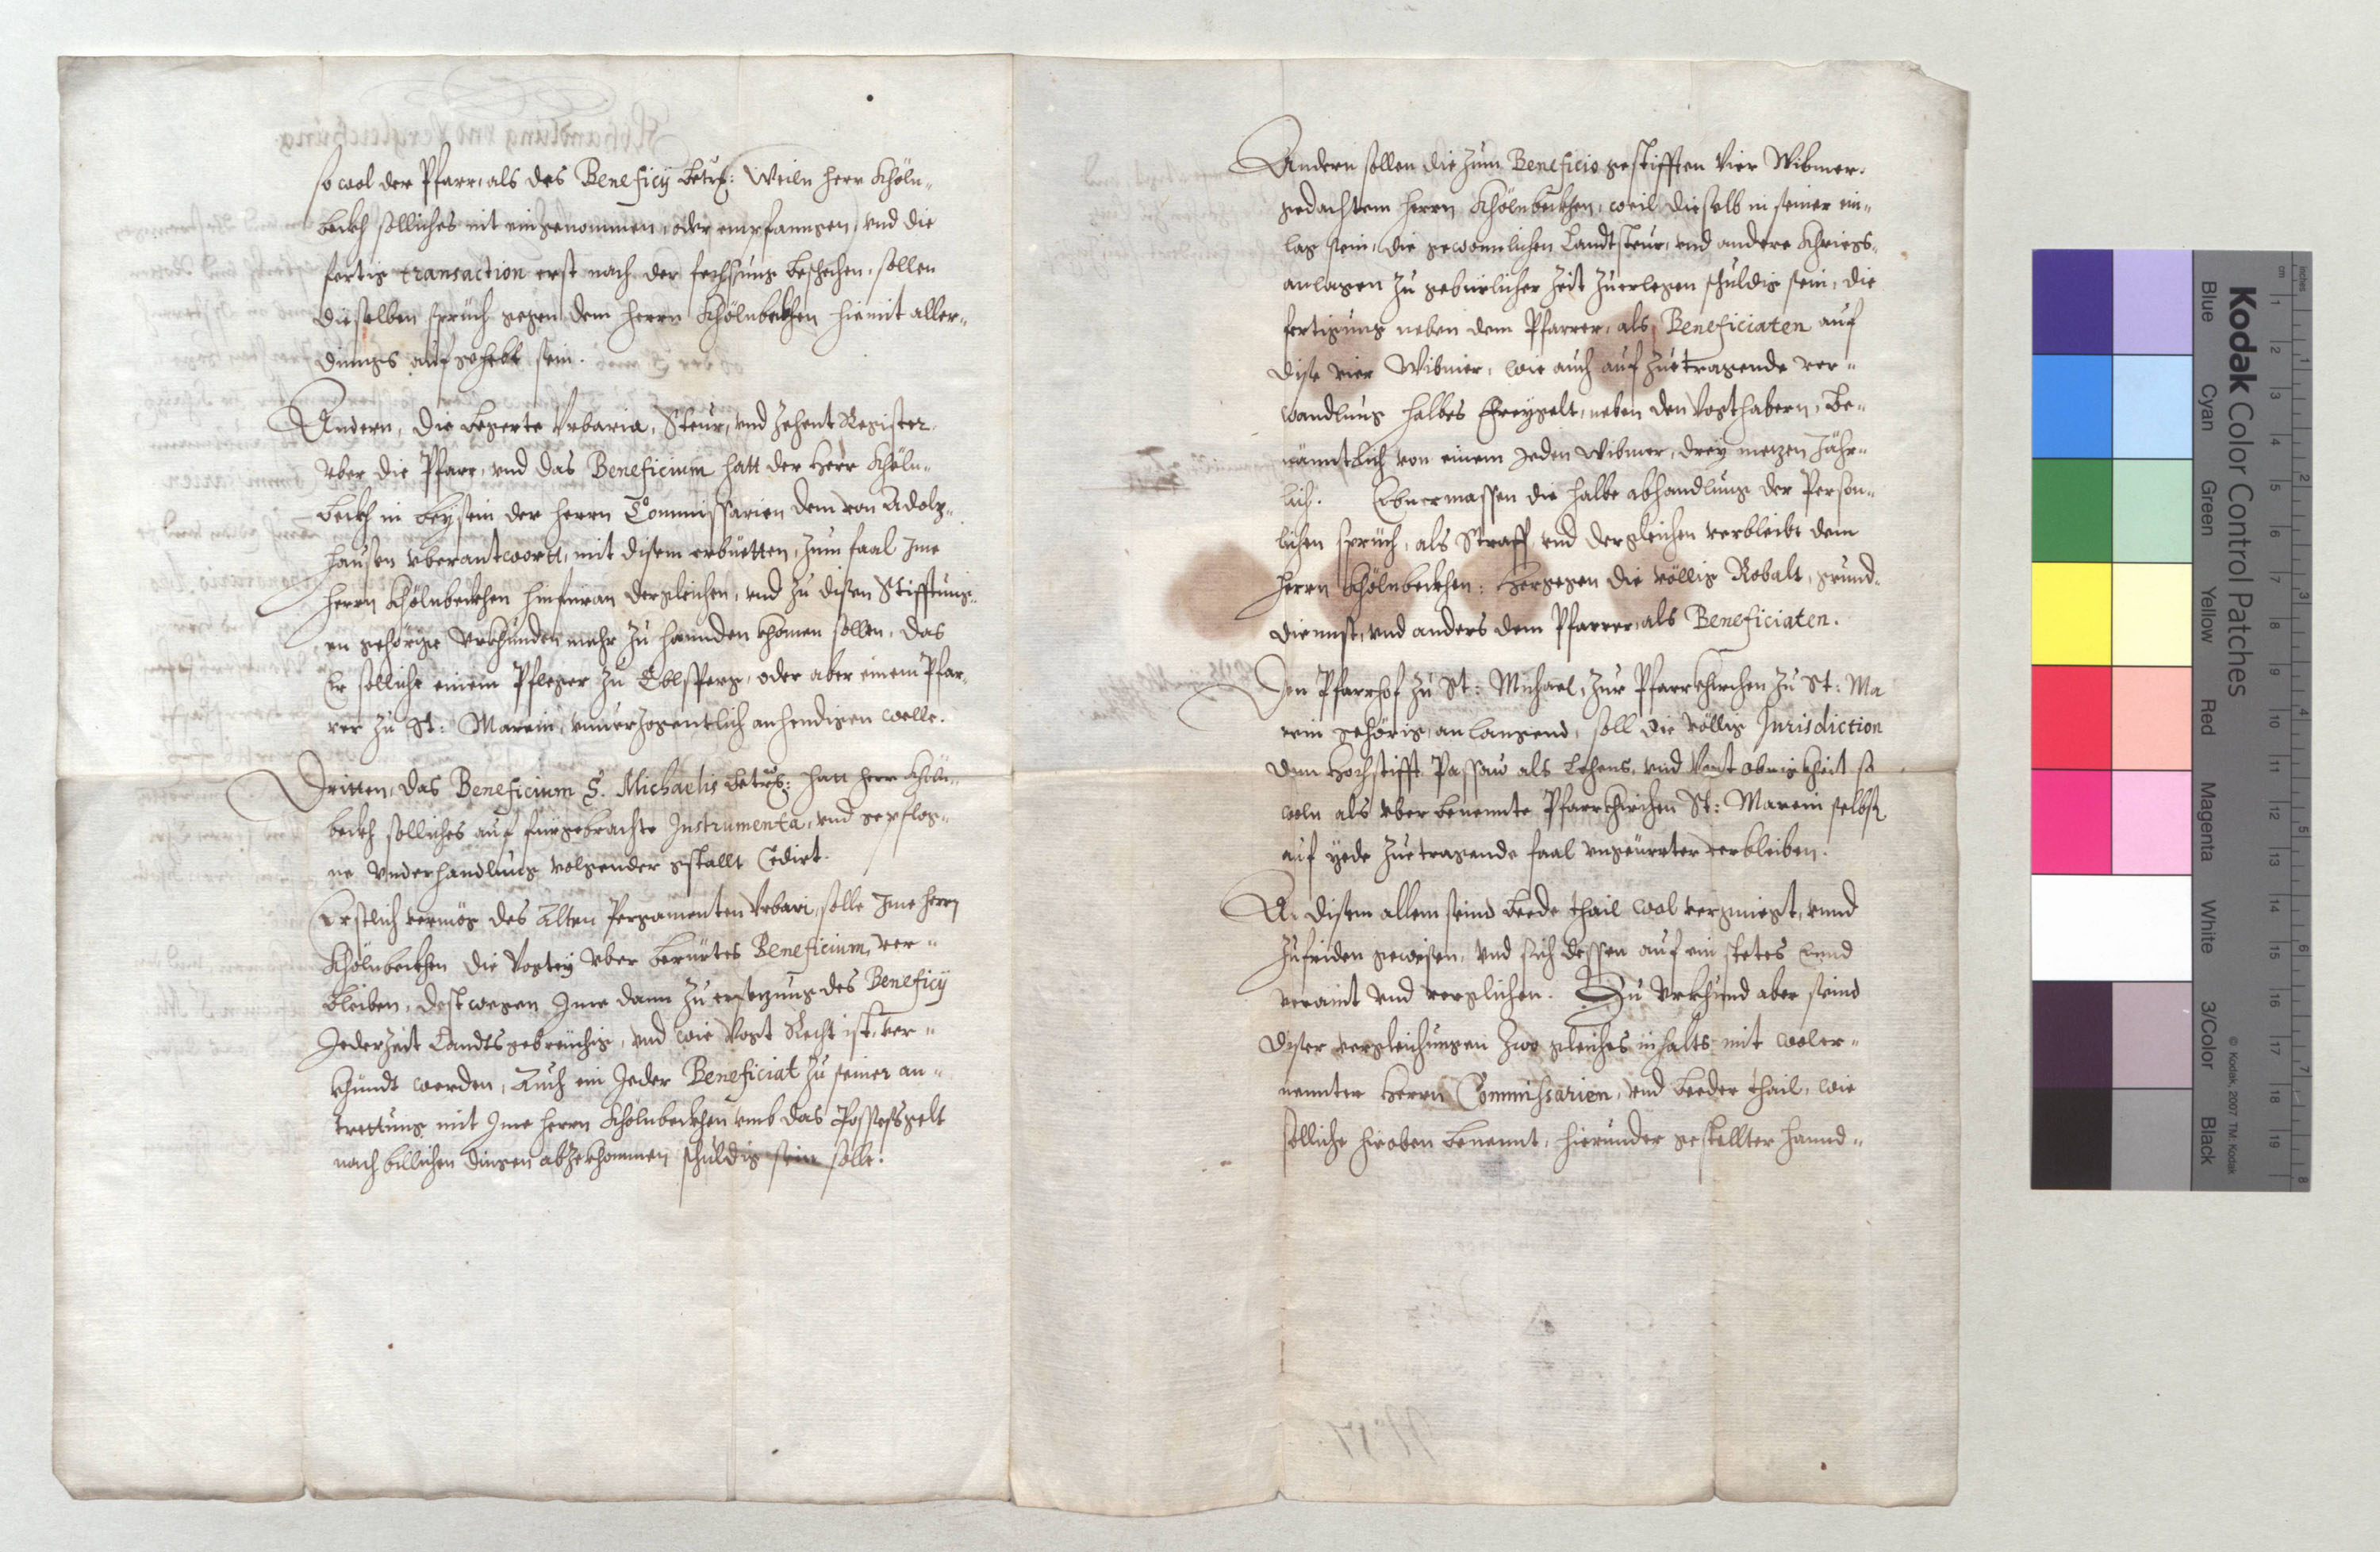 so wol der Pfarr, als des Beneficÿ betrf: Weiln herr Khöln-
beckh solliches nit eingenommen, oder empfanngen, vnd die
fertig transaction erst nach der fechsung beschehen, sollen
dieselben sprüch gegen dem herrn Khölnbeckhen hiemit aller-
dinngs aufgehebt sein.
Andern, die begerte Vrbaria, Steur, vnd Zehent Register
vber die Pfarr, vnd das Beneficium hatt der Herr Khöln-
beckh in beÿsein der herrn Commissarien dem von Adolz-
hausen vberantwortt, mit disem erbietten, zum faal Ime
herrn Khölnbeckhen hinfüran dergleichen, vnd zu disen Stifftung-
en gehörige Vrkhunden mehr zu hannden khomen sollen, das
Er solliche einem Pfleger zu Eblsperg, oder aber einem Pfar-
rer zu St: Marein, vnuerzogentlich anhendigen welle.
Dritten, das Beneficium S. Michaelis betrf: hatt herr Khöln-
beckh solliches auf fürgebrachte Instrumenta, vnd gepflog-
ne Vnderhandlung volgender gstallt Cedirt.
Erstlich vermög des Alten Pergamenten Vrbari, solle Ime herrn
Khölnbeckhen die Vogteÿ vber berürtes Beneficium, ver-
bleiben, destwegen Ime dann zu ersezung des Beneficÿ
Jederzeit Landtsgebreüchig, vnd wie Vogt Recht ist, ver-
khündt werden, Auch ein Jeder Beneficiat zu seiner an-
trettung mit Ime herrn Khölnbeckhen vmb das Possessgelt
nach billichen dingen abzekhommen schuldig sein solle.
Andern sollen die zum Beneficio gestifften Vier Widmer,
gedachtem herrn Khölnbeckhen, weil dieselb in seiner ein-
lag sein, die gewonlichen Landtsteur, vnd andere Khriegs-
anlagen zu gebürlicher Zeit zuerlegen schuldig sein, die
fertigung neben dem Pfarrer, als Beneficiaten auf
dise vier Widmer, wie auch auf zuetragende ver-
wandlung halbes Freygelt, neben den Vogthabern, be-
nänntlich von einem Jeden Widmer, dreÿ mezen Jähr-
lich. Ebnermassen die halbe abhandlung der Person-
lichen sprüch, als Straff, vnd dergleichen verbleibt dem
herrn Khölnbeckhen: Hergegen die völlig Robalt, grund-
diennst, vnd anders dem Pfarrer, als Beneficiaten.
Den Pfarrhof zu St: Michael, zur Pfarrkhirchen zu St: Ma
rein gehörig, anlangend, soll die völlig Jurisdiction
dem Hochstifft Passau als Lehens, vnd Vogt obrigkheit so
woln als vber benennte Pfarrkhirchen St: Marein selbst
auf yede zuetragende faal vngeürrter verbleiben.
An disem allem seind beede thail wol vergnüegt, vnnd
zufriden gewesen, vnd sich dessen auf ein stetes Ennd
veraint vnd verglichen. Zu Vrkhund aber seind
diser vergleichungen zwo gleiches inhalts mit woler-
nennter Herrn Commissarien, vnd beeder thail, wie
solliche hieoben benennt, hierunder gestellter hannd-